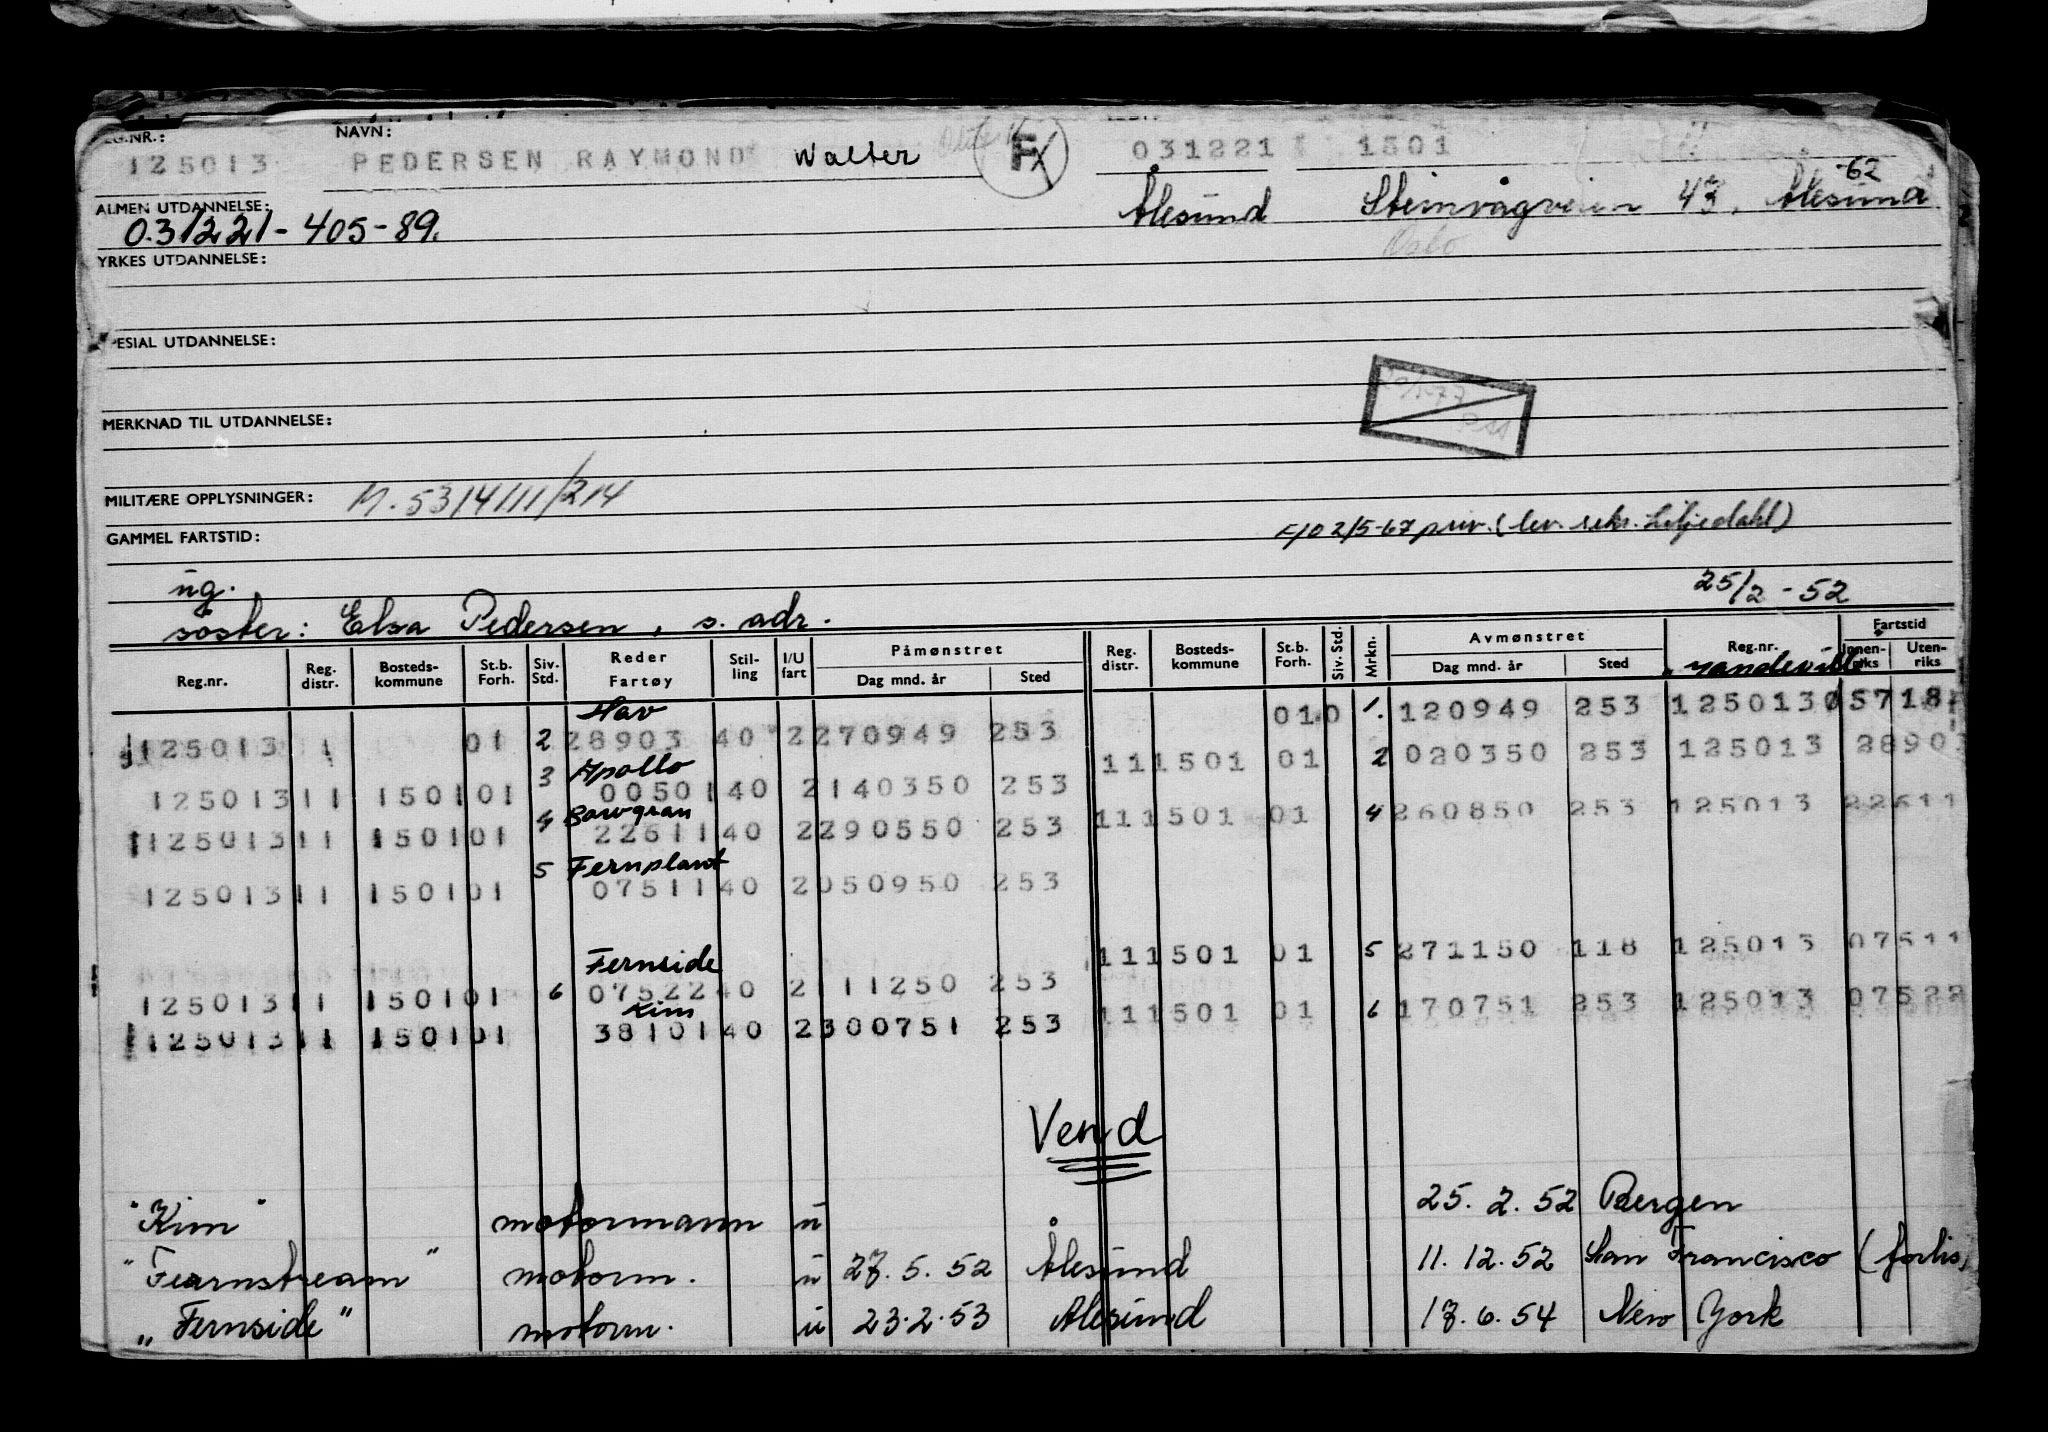 NAVN:
125013 PEDERSEN RAYMOND Walter F 031221 1501
-62
ALMEN UTDANNELSE: Ålesund Steinvågveien 43, Ålesund
031221-405-89. Oslo
YRKES UTDANNELSE:
SPESIAL UTDANNELSE:
MERKNAD TIL UTDANNELSE:
MILITÆRE OPPLYSNINGER: M.5314/11/214
GAMMEL FARTSTID: F/O 2/5-67 priv. (lev. sekr. Liljedahl)
ug. 25/2-52
søster: Elsa Pedersen, s. adr.
Reg.nr. Reg. distr. Bosteds-kommune St.b. Forh. Siv. Std. Reder Fartøy Stil-ling I/U fart Påmønstret Dag mnd. år Sted Reg. distr. Bosteds-kommune St.b. Forh. Siv. Std. Mrkn. Avmønstret Dag mnd. år Sted Reg.nr. Fartstid Innen-riks Uten-riks
010 1. 120949 253 125013 05718
Hav
125013 11 01 2 28903 40 2 270949 253 111501 01 2 020350 253 125013 2890
3 Apollo
125013 11 1501 01 00501 40 2 140350 253 111501 01 4 260850 253 125013 22611
4 Bowgran
125013 11 1501 01 22611 40 2 290550 253
5 Fernplant
125013 11 1501 01 07511 40 2 050950 253
111501 01 5 271150 118 125013 07511
Fernside
125013 11 1501 01 6 07522 40 2 111250 253 111501 01 6 170751 253 125013 07522
Kim
125013 11 1501 01 38101 40 2 300751 253
Vend
"Kim" motormann u 25.2.52 Bergen
"Fearnstream" motorm. u 27.5.52 Ålesund 11.12.52 San Francisco (forlis)
"Fernside" motorm. u 23.2.53 Ålesund 17.6.54 New York